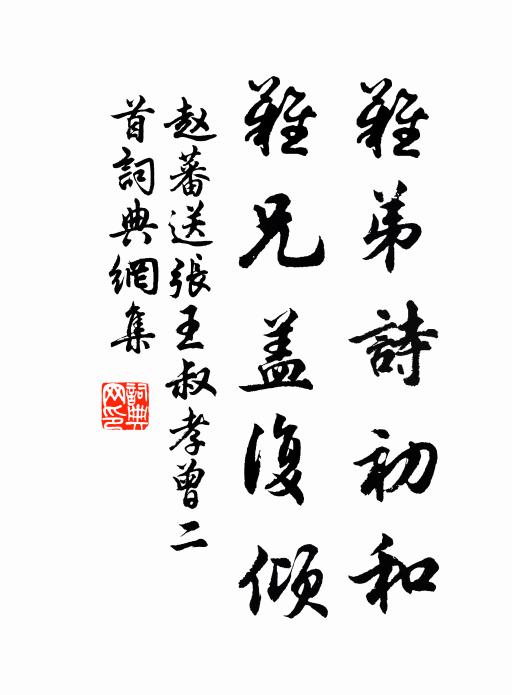 難弟詩初和
難兄盖復傾
赵蕃送張王叔孝曾二
首詞典網集
詞典網印